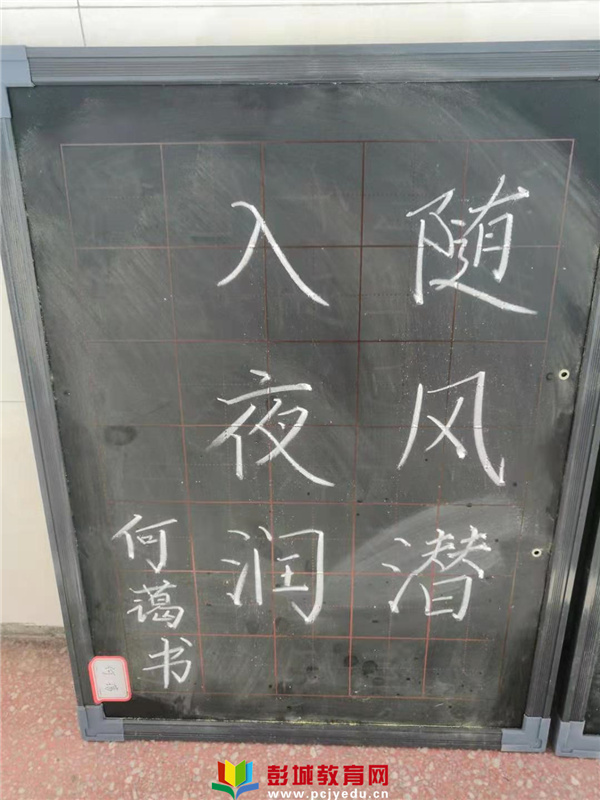 随风潜
入夜润
何蔼书
彭城教育网
www.pcjyedu.cn